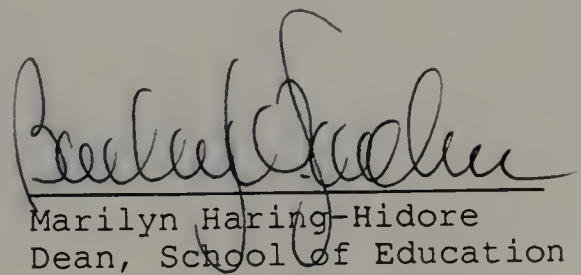 Marilyn Haring-Hidore
Dean, School of Education